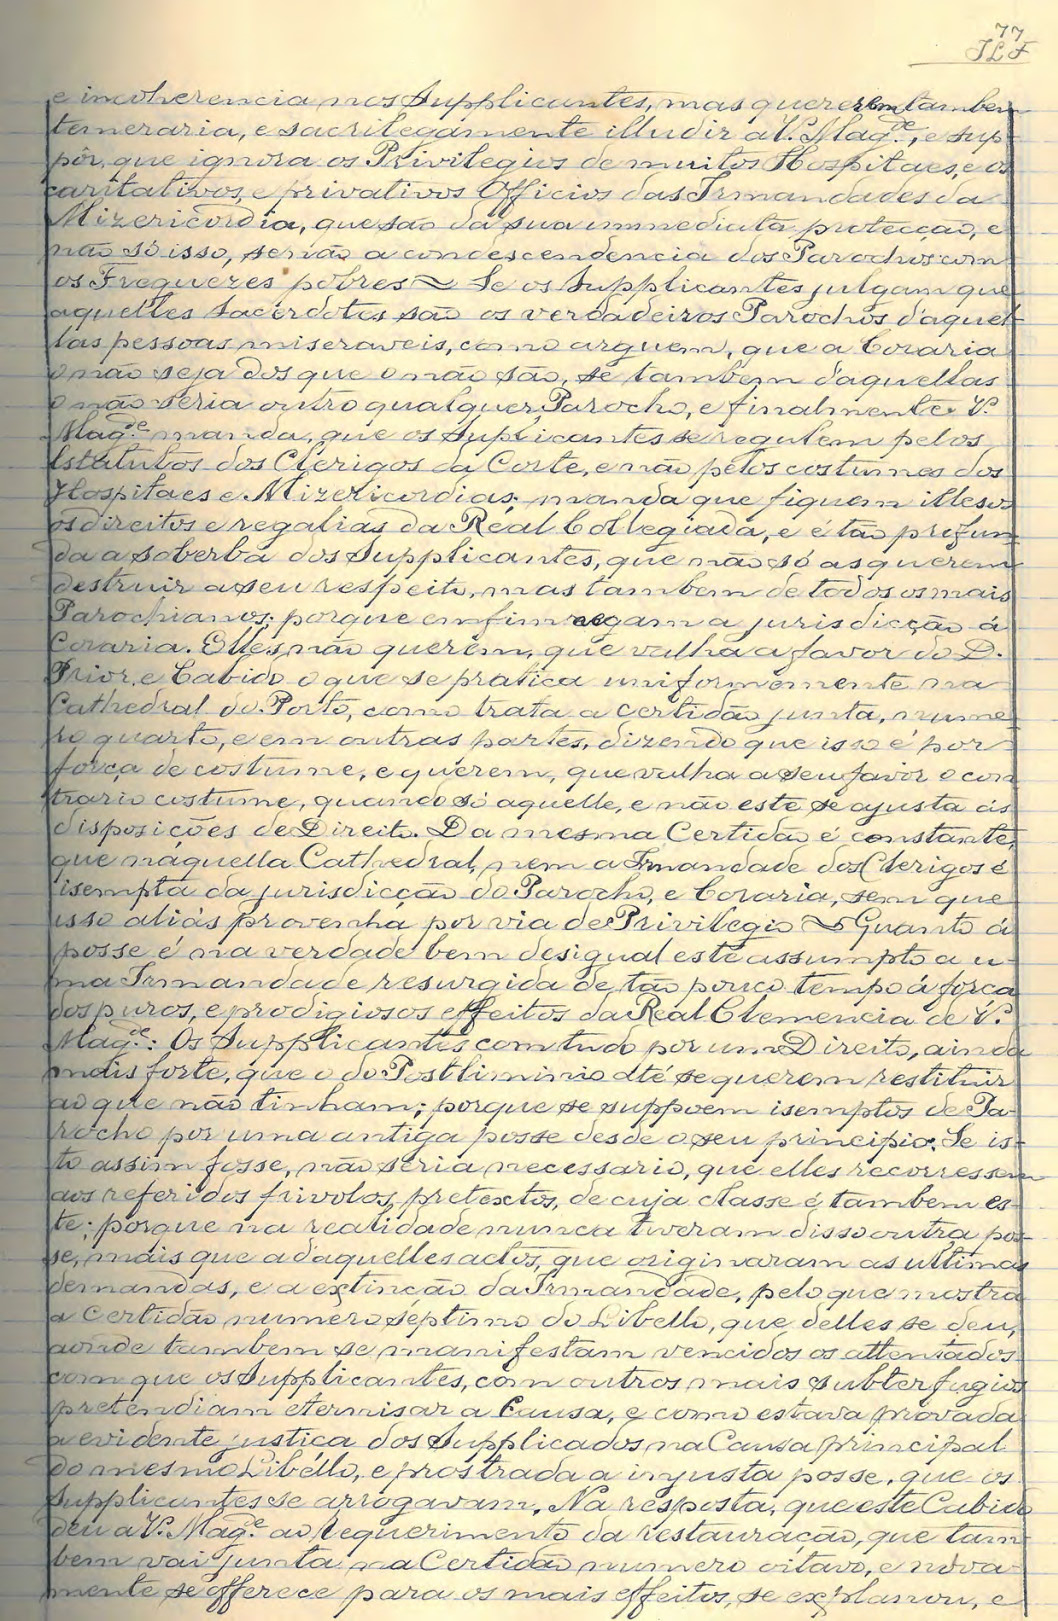 77
JLF
e incoherencia nos Supplicantes, mas quererem tambem
temeraria, e sacrilegamente illudir a V. Mag.de, e sup-
pôr, que ignora os Privilegios de muitos Hospitaes, e os
caritativos, e privativos Officios das Irmandades da
Mizericordia, que são da sua immediata protecção, e
não só isso, senão a condescendencia dos Parochos com
os Freguezes pobres ~ Se os Supplicantes julgam que
aquelles Sacerdotes são os verdadeiros Parochos d'aquel-
las pessoas miseraveis, como arguem, que a Coraria
o não seja dos que o não são, se tambem d'aquellas
o não seria outro qualquer Parocho, e finalmente V.
Mag.de manda, que os Suplicantes se regulem pelos
Estatutos dos Clerigos da Corte, e não pelos costumes dos
Hospitaes e Mizericordias; manda que fiquem illesos
os direitos e regalias da Real Collegiada, e é tão profun-
da a soberba dos Supplicantes, que não só as querem
destruir a seu respeito, mas tambem de todos os mais
Parochianos; porque emfim negam a jurisdicção á
Coraria. Elles não querem, que valha a favor do D.
Prior, e Cabido o que se pratica uniformemente na
Cathedral do Porto, como trata a certidão junta, nume-
ro quarto, e em outras partes, dizendo que isso é por
força de costume, e querem, que valha a seu favor o con
trario costume, quando só aquelle, e não este se ajusta ás
disposições de Direito. Da mesma Certidão é constante,
que náquella Cathedral, nem a Irmandade dos Clerigos é
isempta da jurisdicção do Parocho, e Coraria, sem que
isso aliás provenha por via de Privilegio ~ Quanto á
posse é na verdade bem desigual este assumpto a u-
ma Irmandade resurgida de tão pouco tempo á força
dos puros, e prodigiosos effeitos da Real Clemencia de V.
Mag.de: Os Supplicantes com tudo por um Direito, ainda
mais forte, que o do Postliminio até se querem restituir
ao que não tinham; porque se suppoem isemptos de Pa-
rocho por uma antiga posse desde o seu principio. Se is-
to assim fosse, não seria necessario, que elles recorressem
aos referidos frivolos pretextos, de cuja classe é tambem es-
te; porque na realidade nunca tiveram disso outra pos-
se, mais que a d'aquelles actos, que originaram as ultimas
demandas, e a extinção da Irmandade, pelo que mostra
a Certidão numero séptimo do Libello, que delles se deu,
aonde tambem se manifestam vencidos os attentados
com que os Supplicantes, com outros mais subterfugios
pretendiam eternisar a Causa, e como estava provada
a evidente justiça dos Supplicados na Causa principal
do mesmo Libéllo, e prostrada a injusta posse, que os
Supplicantes se arrogavam. Na resposta, que este Cabido
deu a V. Mag.de ao requerimento da restauração, que tam-
bem vai junta na Certidão numero oitavo, e nova-
mente se offerece para os mais effeitos, se explanou, e